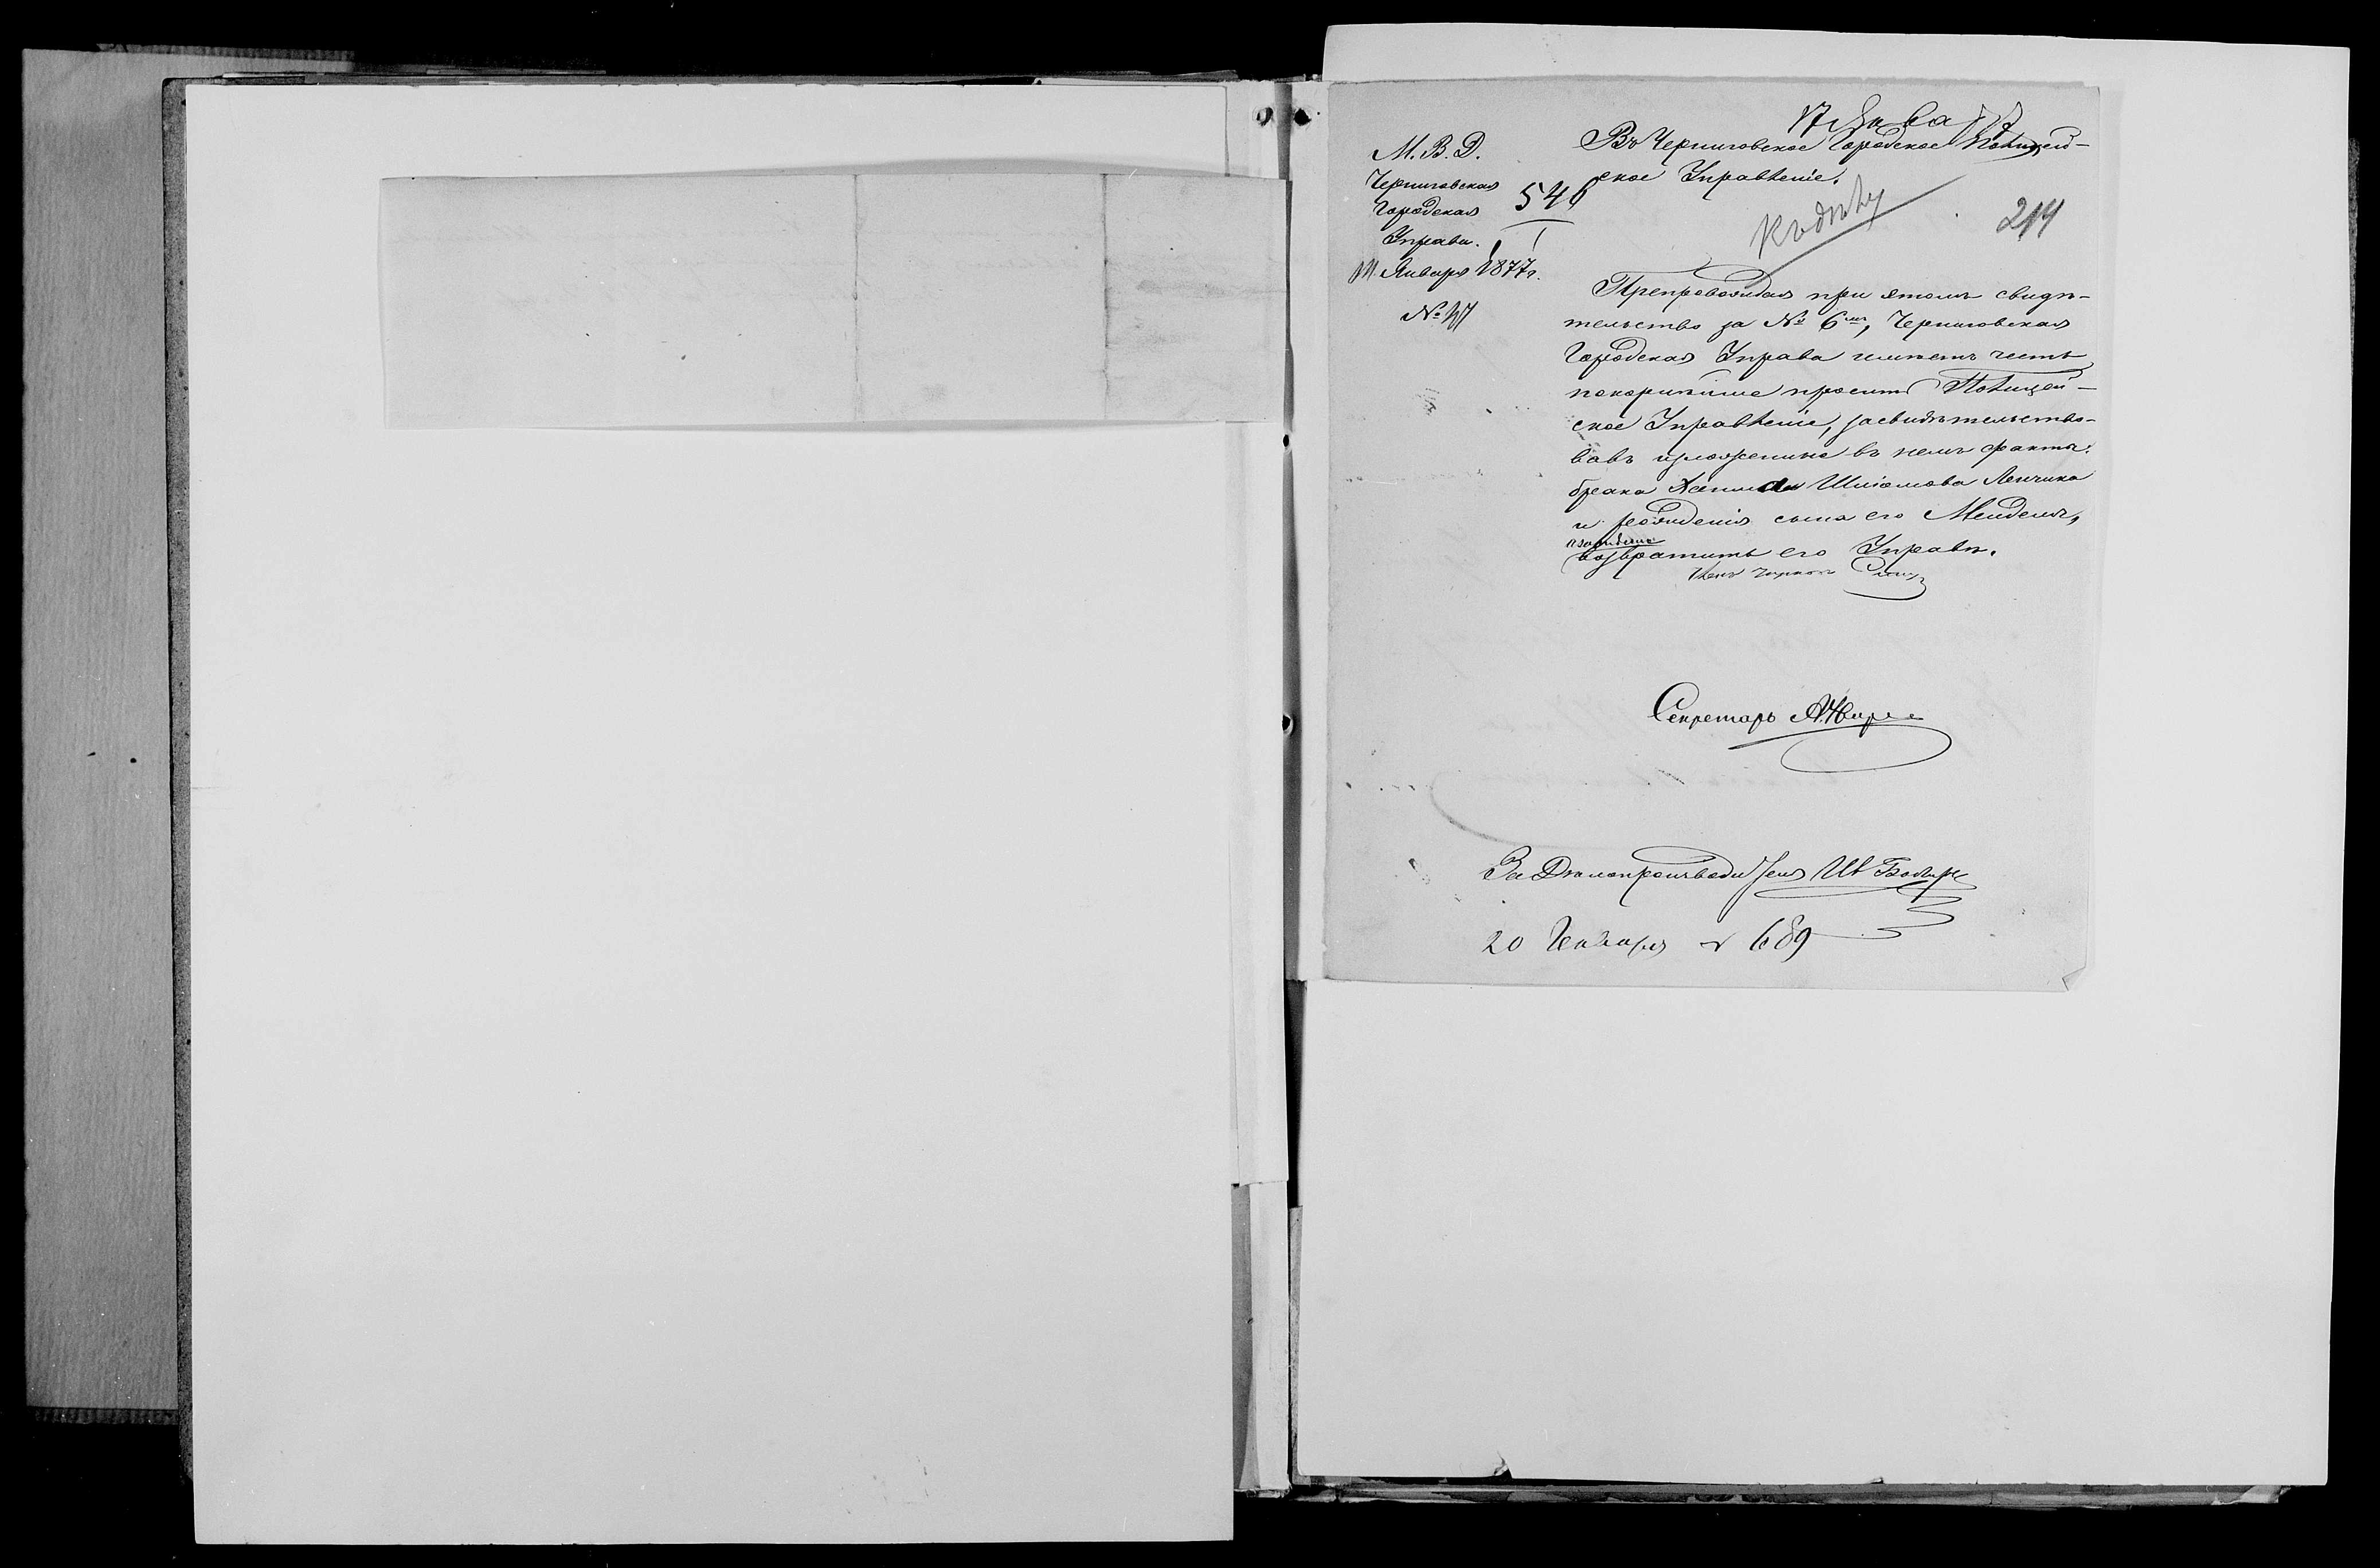 17 Января 77
М. В. Д.
Черниговская
Городская
Управа.
Января 1877 г.
№ 47
546
1
Въ Черниговское Городское Полицей-
ское Управленіе.
Къ дѣлу
214
Препровождая при этомъ свидѣ-
тельство за № 6мъ, Черниговская
Городская Управа имѣетъ честь
покорнѣйше просить Полицей-
ское Управленіе, засвидѣтельство-
вавъ изложенные въ немъ факты:
брака Шліомова Ленчика
и рожденія сына его Менделя,
возвратить его Управѣ.
Членъ Управы
Секретарь
За Дѣлопроизводителя
20 Генваря № 689